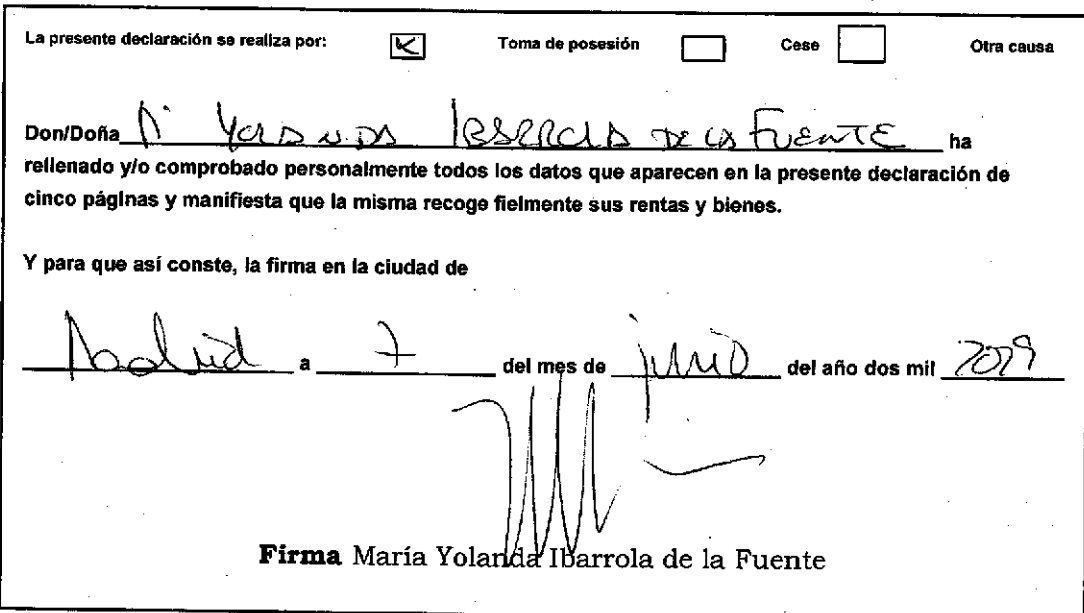 La presente declaración se realiza por: Toma de posesión Cese Otra causa
Don/Doña Mª YOLANDA IBARROLA DE LA FUENTE ha
rellenado y/o comprobado personalmente todos los datos que aparecen en la presente declaración de
cinco páginas y manifiesta que la misma recoge fielmente sus rentas y bienes.
Y para que así conste, la firma en la ciudad de
Madrid a 7 del mes de junio del año dos mil
Firma María Yolanda Ibarrola de la Fuente